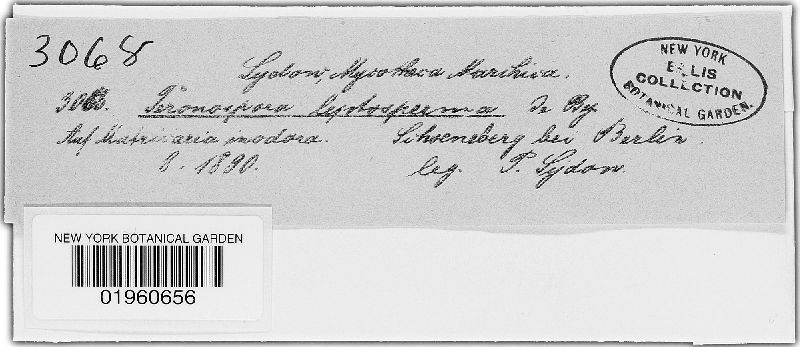 3068
Sydow, Mycotheca Marchica.
NEW YORK
ELLIS
COLLECTION
BOTANICAL GARDEN.
Peronospora leptosperma De Bry.
Auf Matricaria inodora. Schoeneberg bei Berlin
8. 1890. leg. P. Sydow.
NEW YORK BOTANICAL GARDEN
01960656